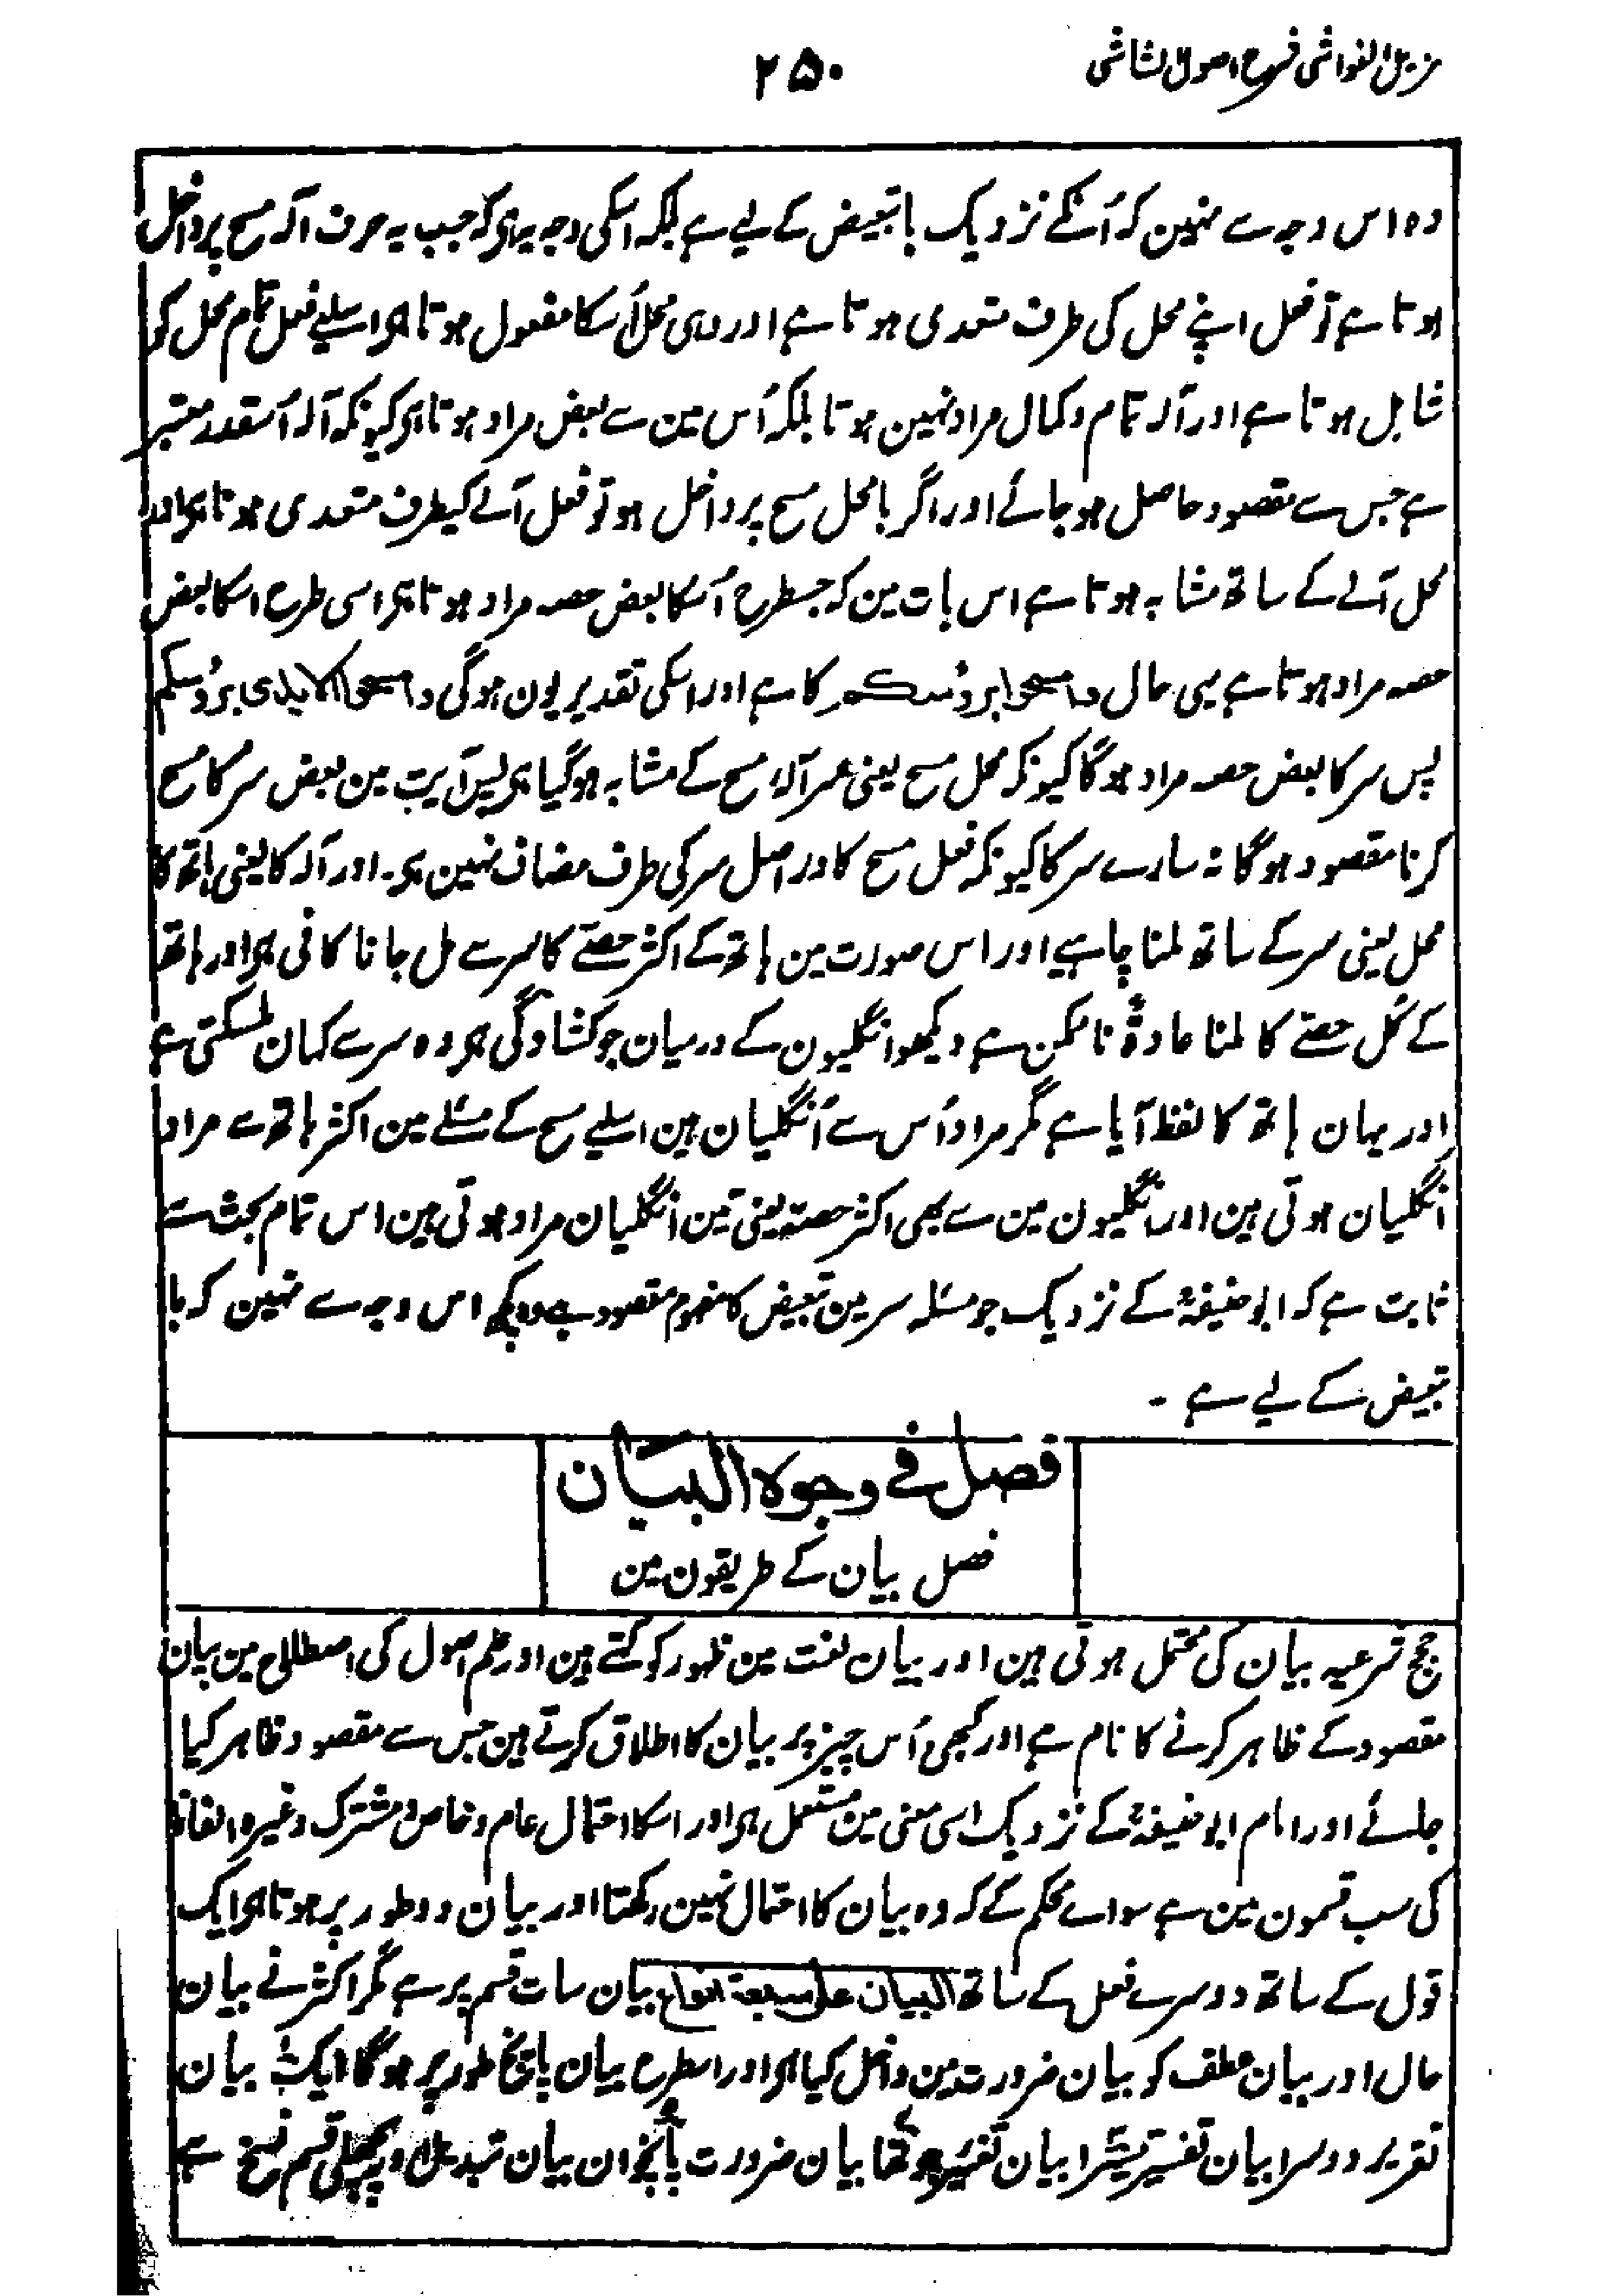 مزیل الغواشی شرح اصول الشاشی
۲۵۰
وہ اس وجہ سے نہین کہ اُنکے نزدیک با تبعیض کے لیے ہے بلکہ اسکی وجہ یہ ہی کہ جب یہ حرف آلہ مسح پر داخل
ہوتا ہے تو فعل اپنے محل کی طرف متعدی ہوتا ہے اور وہی محل اُسکا مفعول ہوتا ہی اسلیے فعل تمام محل کو
شامل ہوتا ہے اور آلہ تمام وکمال مراد نہین ہوتا بلکہ اُس مین سے بعض مراد ہوتا ہی کیونکہ آلہ اُسقدر معتبر
ہے جس سے مقصود حاصل ہو جائے اور اگر با محل مسح پر داخل ہو تو فعل آلے کیطرف متعدی ہوتا ہی اور
محل آلے کے ساتھ مشابہ ہوتا ہے اس بات مین کہ جسطرح اُسکا بعض حصہ مراد ہوتا ہی اسی طرح اسکا بعض
حصہ مراد ہوتا ہے یہی حال وامسحوا برؤسکم کا ہے اور اسکی تقدیر یون ہوگی وامسحوا الایدی برؤسکم
پس سر کا بعض حصہ مراد ہوگا کیونکہ محل مسح یعنی سر آلۂ مسح کے مشابہ ہوگیا ہی پس آیت مین بعض سر کا مسح
کرنا مقصود ہوگا نہ سارے سر کا کیونکہ فعل مسح کا دراصل سر کی طرف مضاف نہین ہی۔ اور آلہ کا یعنی ہاتھ کا
محل یعنی سر کے ساتھ ملنا چاہیے اور اس صورت مین ہاتھ کے اکثر حصّے کا سر سے مل جانا کافی ہی اور ہاتھ
کے کُل حصّے کا ملنا عادۃً ناممکن ہے دیکھو انگلیون کے درمیان جو کشادگی ہی وہ سر سے کہان ملسکتی ہے
اور یہان ہاتھ کا لفظ آیا ہے مگر مراد اُس سے اُنگلیان ہین اسلیے مسح کے مسئلے مین اکثر ہاتھ سے مراد
انگلیان ہوتی ہین اور انگلیون مین سے بھی اکثر حصہ یعنی تین انگلیان مراد ہوتی ہین اس تمام بحث سے
ثابت ہے کہ ابو حنیفہؒ کے نزدیک جو مسئلہ سر مین تبعیض کا مفہوم مقصود ہے وہ کچھ اس وجہ سے نہین کہ با
تبعیض کے لیے ہے ۔
فصل فی وجوہ البیان
فصل بیان کے طریقون مین
حجج شرعیہ بیان کی محتمل ہوتی ہین اور بیان لغت مین ظہور کو کہتے ہین اور علم اصول کی اصطلاح مین بیان
مقصود کے ظاہر کرنے کا نام ہے اور کبھی اُس چیز پر بیان کا اطلاق کرتے ہین جس سے مقصود ظاہر کیا
جائے اور امام ابو حنیفہؒ کے نزدیک اسی معنی مین مستعمل ہی اور اسکا احتمال عام و خاص و مشترک وغیرہ الفاظ
کی سب قسمون مین ہے سواے محکم کے کہ وہ بیان کا احتمال نہین رکھتا اور بیان دو طور پر ہوتا ہی ایک
قول کے ساتھ دوسرے فعل کے ساتھ البیان علی سبعۃ انواع بیان سات قسم پر ہے مگر اکثر نے بیان
حال اور بیان عطف کو بیان ضرورت مین داخل کیا ہی اور اسطرح بیان پانچ طور پر ہوگا ایک بیان
تقریر دوسرا بیان تفسیر تیسرا بیان تغییر چوتھا بیان ضرورت پانچوان بیان تبدیل اور پچھلی قسم نسخ ہے